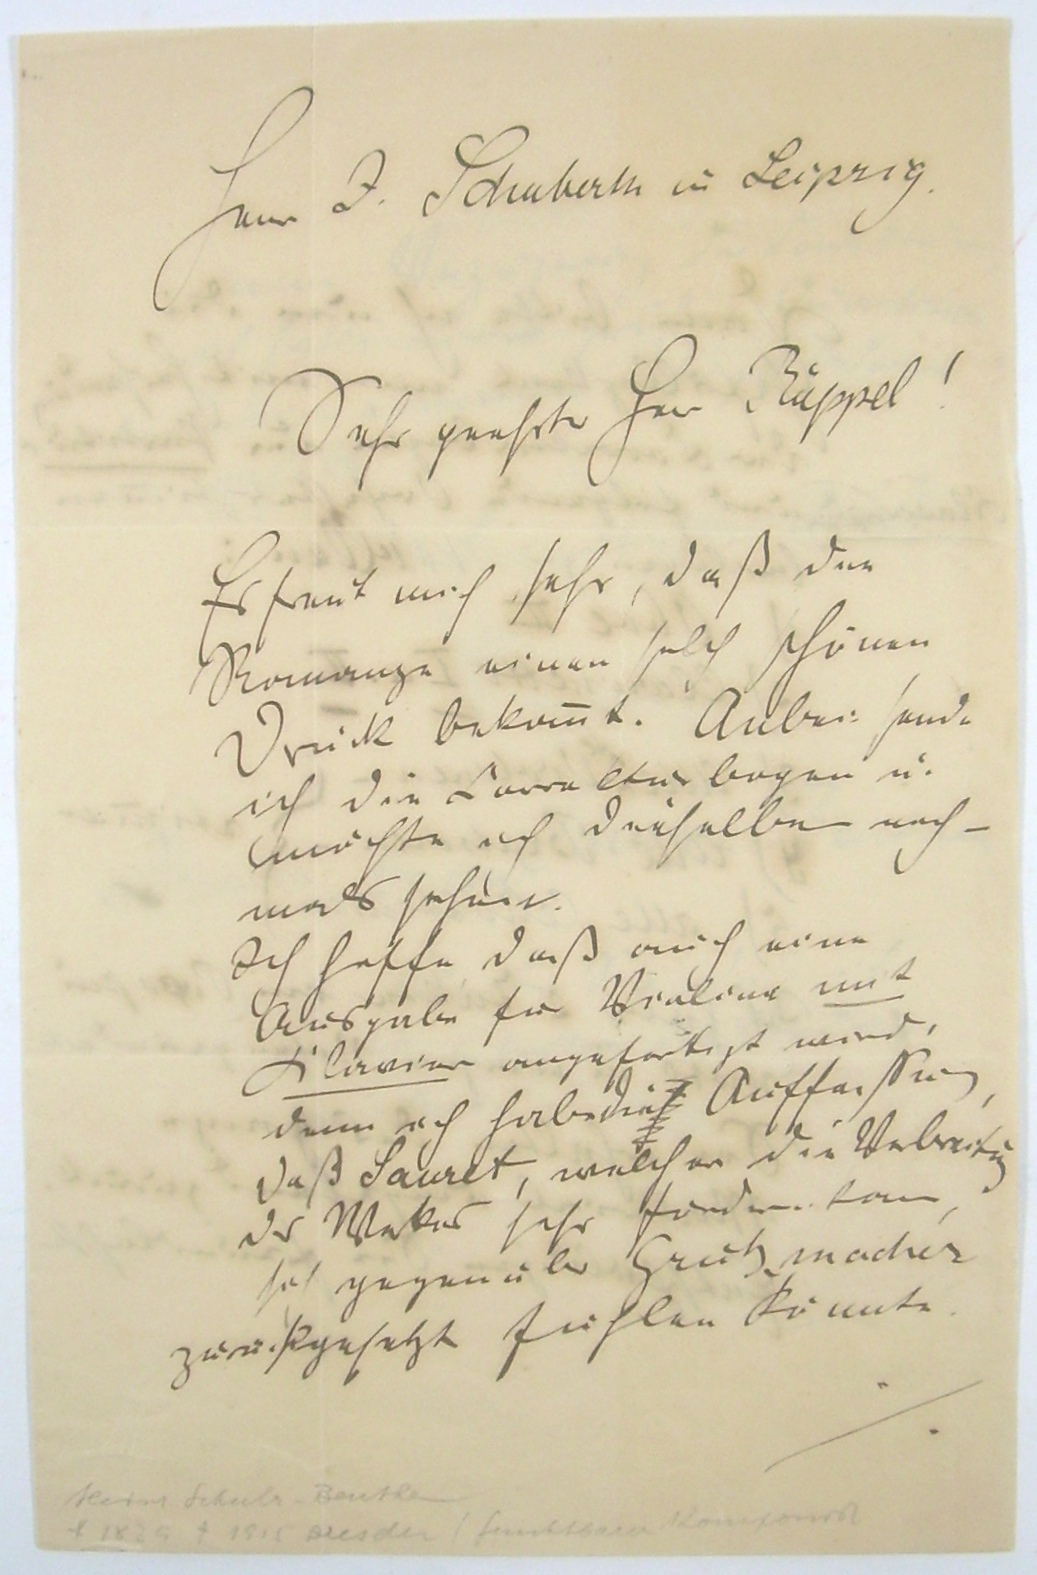 Herr J. Schuberth in Leipzig.
Sehr geehrter Herr Rüppel!
Es freut mich sehr, daß die
Romanze einen solch schönen
Druck bekom̅t. Anbei sende
ich die Correcturbogen u.
möchte ich dieselben noch-
mals sehen.
Ich hoffe daß auch eine
Ausgabe für Violine mit
Klavier angefertigt wird,
denn ich habe die Auffassung,
daß Sauret, welcher die Verbreitung
des Werkes sehr fördern kann,
sich gegenüber Grützmacher
zurückgesetzt fühlen könnte.
./.
Schulz-Beuthen
† 1915 Dresden (fruchtbarer Komponist